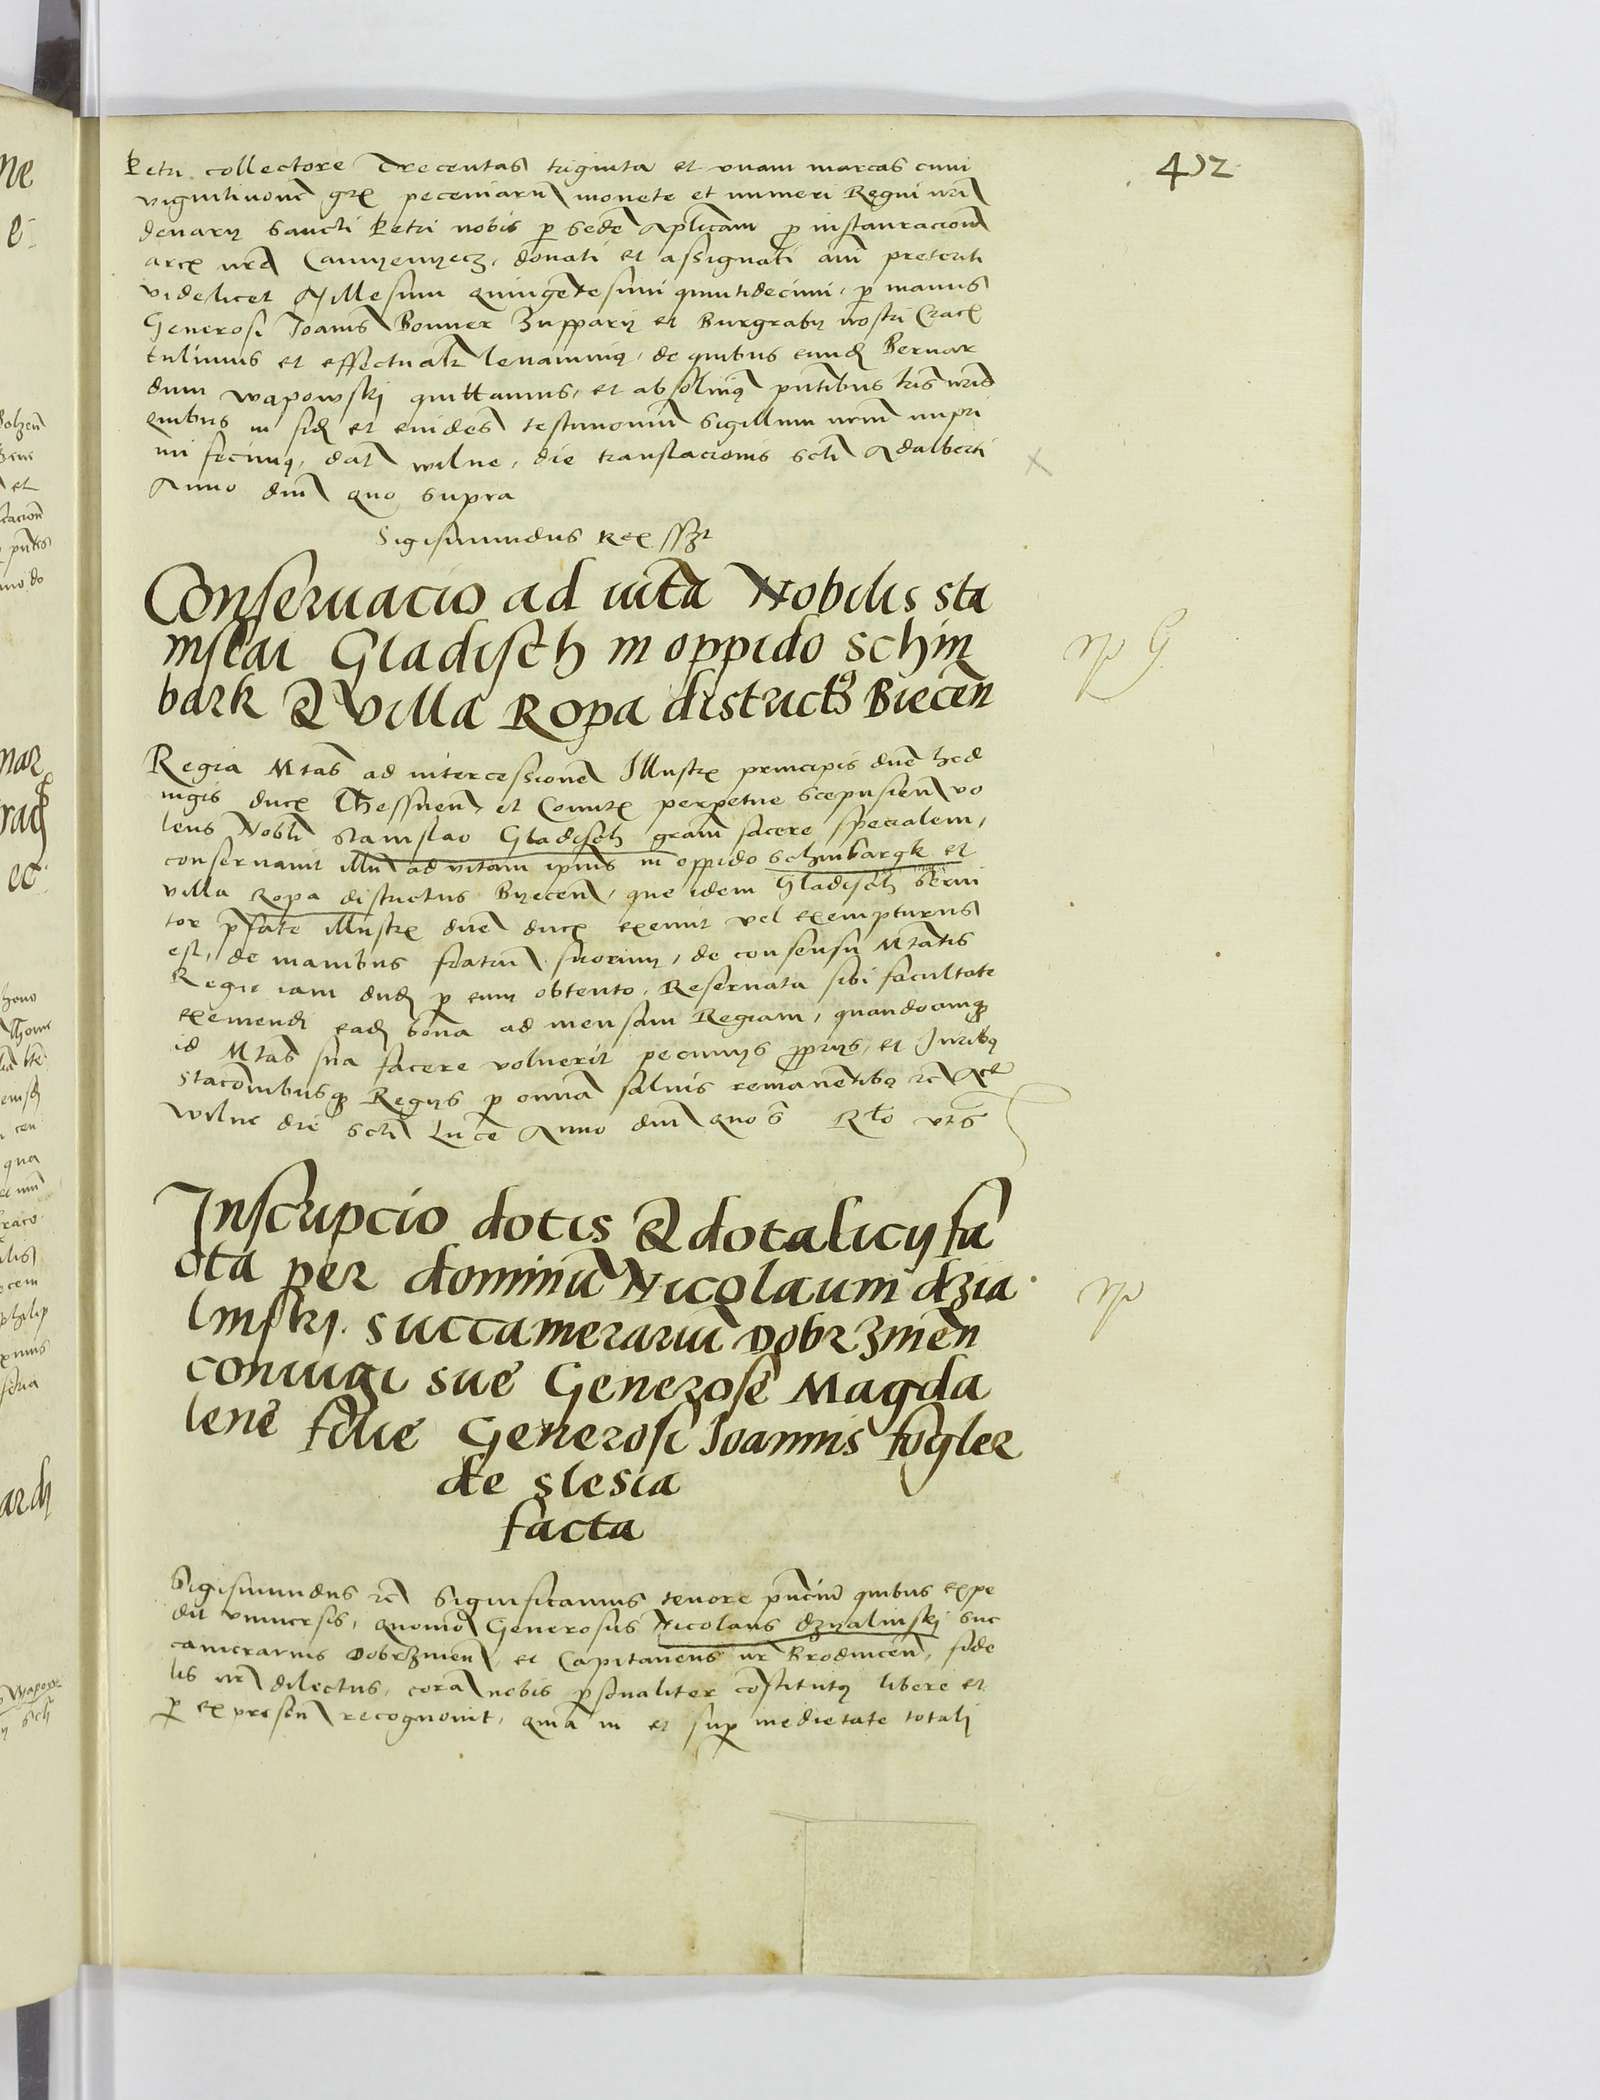 452
Petri collectore Trecentas triginta et unam marcas cum
vigintinovem grx pecuniarum monete et numeri Regni nri
denarij Sancti Petri nobis p sedem aplicam p instauracione
arcx nre Camyenyecz, donati et assignati anni preteriti
videlicet Millesimi quingetesimi quintidecimi, p manus
Generosi Joanis Bonner Zupparij et Burgrabij nostri Cracx
tulimus et effectualr levavimus, de quibus eund Bernar
dum Wapowskj quittamus, et absolvimus pntibus lris nris
Quibus in fid et evides testimonium Sigillum nrum impri
mi fecimus, dat Wilne, die translacionis scti Adalberti
Anno dni quo supra
Sigismundus Rex sszt
Conservacio ad vita Nobilis sta
nislai Gladisch in oppido schin
bark & villa Ropa districtus Biecen
Regia Mtas ad intercessionem Illustrx principis dne hed
vigis ducx Thessinen et Comitx perpetue Scepusien vo
lens Nobli Stanislao Gladisch gram facere specialem,
conservavit illu ad vitam ipius in oppido Schinbargk et
villa Ropa districtus Byecen, que idem Gladisch servi
tor pfate illustrx dne ducx exemit vel exempturus
est, de manibus fratru suorum, de consensu Mtatis
Regie iam dud p eum obtento, Reservata sibi facultate
exemendi ead bona ad mensam Regiam, quandocumq
id Mtas sua facere voluerit pecunijs pprijs, et Juribus
stacionibusq Regijs p omnia salvis remanentibus rc Act
Wilne die scti Luce Anno dni quo s Rlo uts
Inscripcio dotis & dotalicij fa
cta per dominu Nicolaum dzia
linskj. succamerariu Dobrzinen
coniugi sue Generose Magda
lene filie Generosi Joannis fogler
de slesia
facta
Sigismundus rc Significamus tenore pncium quibus expe
dit universis, quomo Generosus Nicolaus dzyalinskj suc
camerarius Dobrzinen et Capitaneus nr Brodnicen, fide
lis nr dilectus, cora nobis psonaliter costitutus libere et
p expressum recognovit, quia in et sup medietate totalj